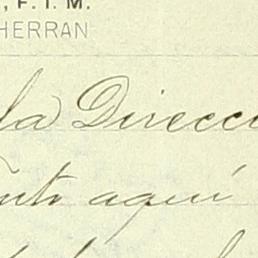 , F. I. M.
HERRAN
la Direcci
ento aquí